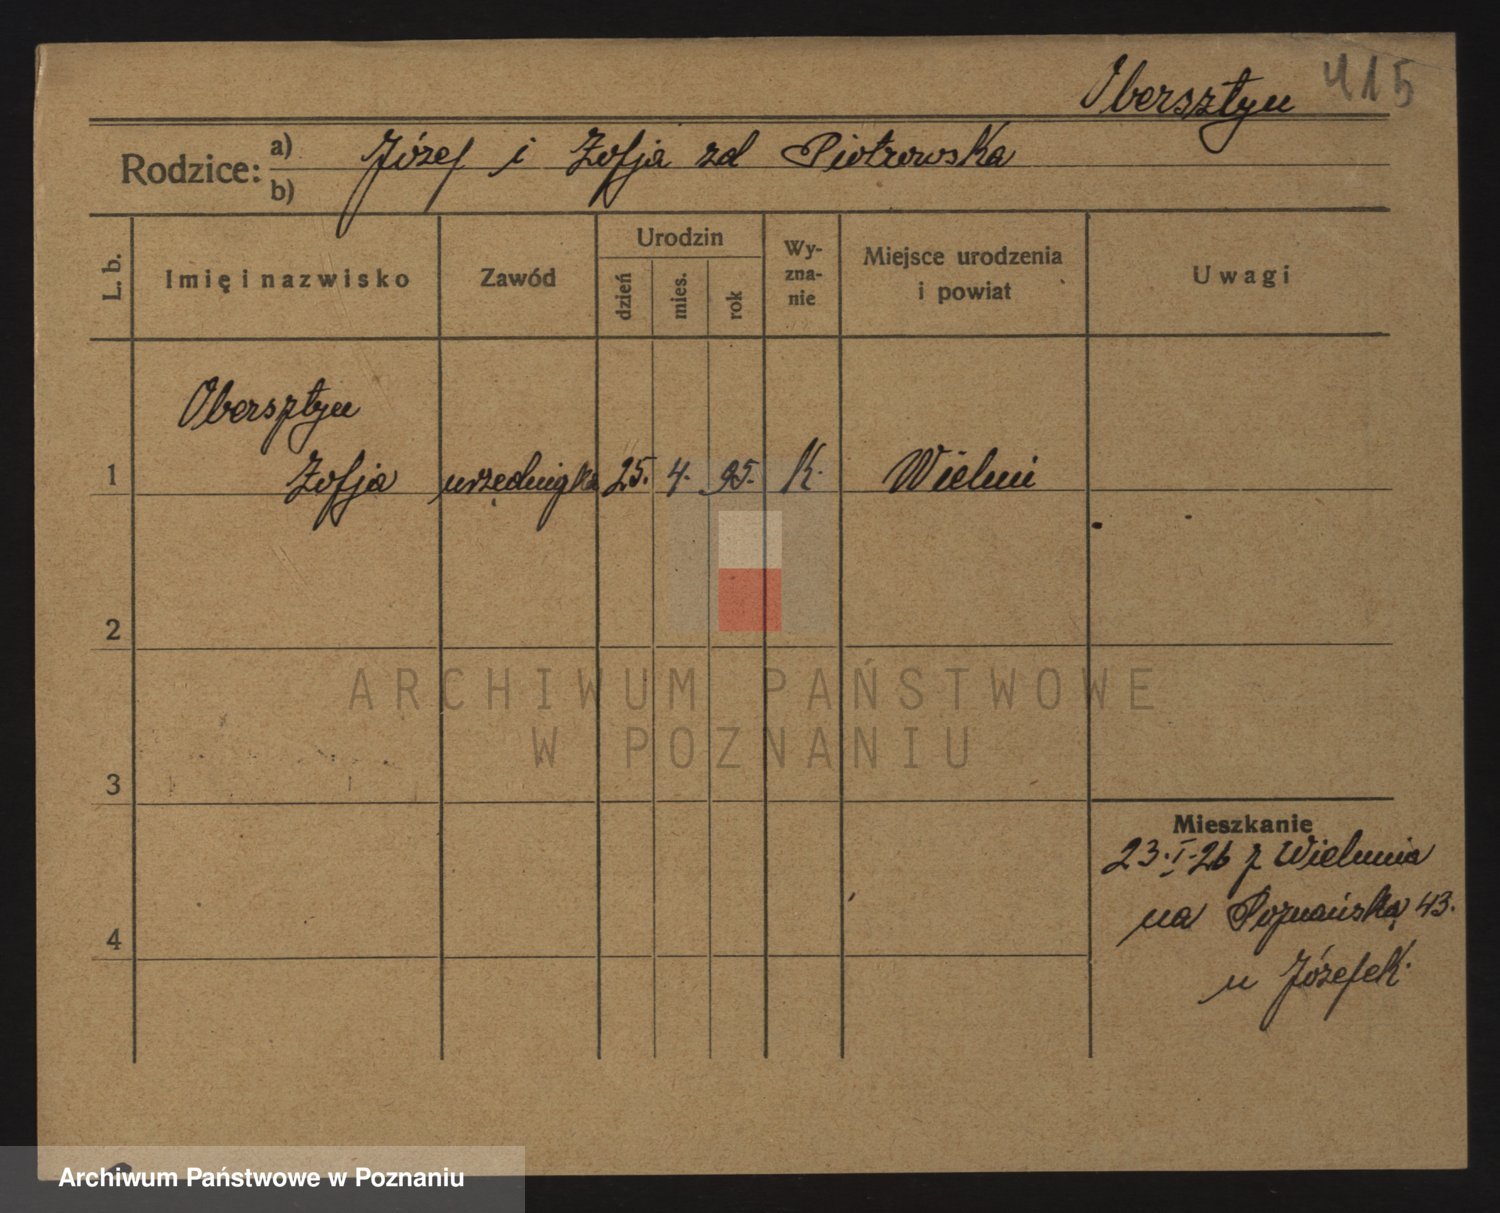 Obersztyn 415
Rodzice: a) Józef i Zofja zd Piotrowska
b)
L. b. Imię i nazwisko Zawód Urodzin dzień mies. rok Wy-zna-nie Miejsce urodzenia i powiat Uwagi
Obersztyn
1 Zofja urzędniczka 25. 4. 95. K. Wieluń
2
ARCHIWUM PAŃSTWOWE
W POZNANIU
3
Mieszkanie
23.I.26 z Wielunia
na Poznańską 43.
4
u Józefek.
Archiwum Państwowe w Poznaniu